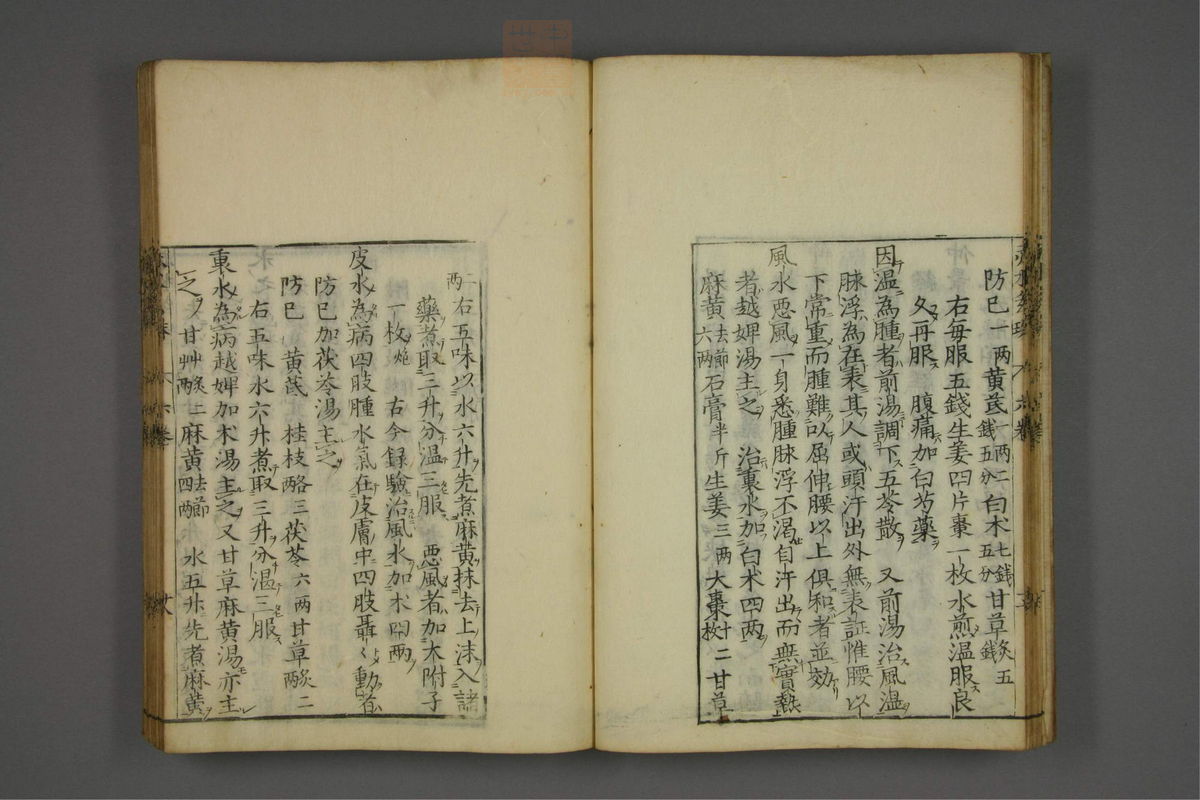 防已一两黄芪一两二錢五分白术七錢五分甘草炙五錢
右每服五錢生姜四片棗一枚水煎温服良
久再服 腹痛加白芍藥
因温為腫者前湯調下五苓散 又前湯治風温
脉浮為在表其人或頭汗出外無表証惟腰以
下常重而腫難以屈伸腰以上俱和者並効
風水惡風一身悉腫脉浮不渴自汗出而無實熱
者越婢湯主之 治裏水加白术四两
麻黄去節六两石膏半斤生姜三两大棗十二枚甘草
二两右五味以水六升先煮麻黄抹去上沫入諸
藥煮取三升分温三服 惡風者加木附子
一枚炮 古今録驗治風水加术四两
皮水為病四肢腫水氣在皮膚中四肢聶〻動者
防已加茯苓湯主之
防已 黄芪 桂枝各三两茯苓六两甘草炙二两
右五味水六升煮取三升分温三服
裏水為病越婢加术湯主之又甘草麻黄湯亦主
之 甘艸炙二两麻黄去節四两 水五升先煮麻黄